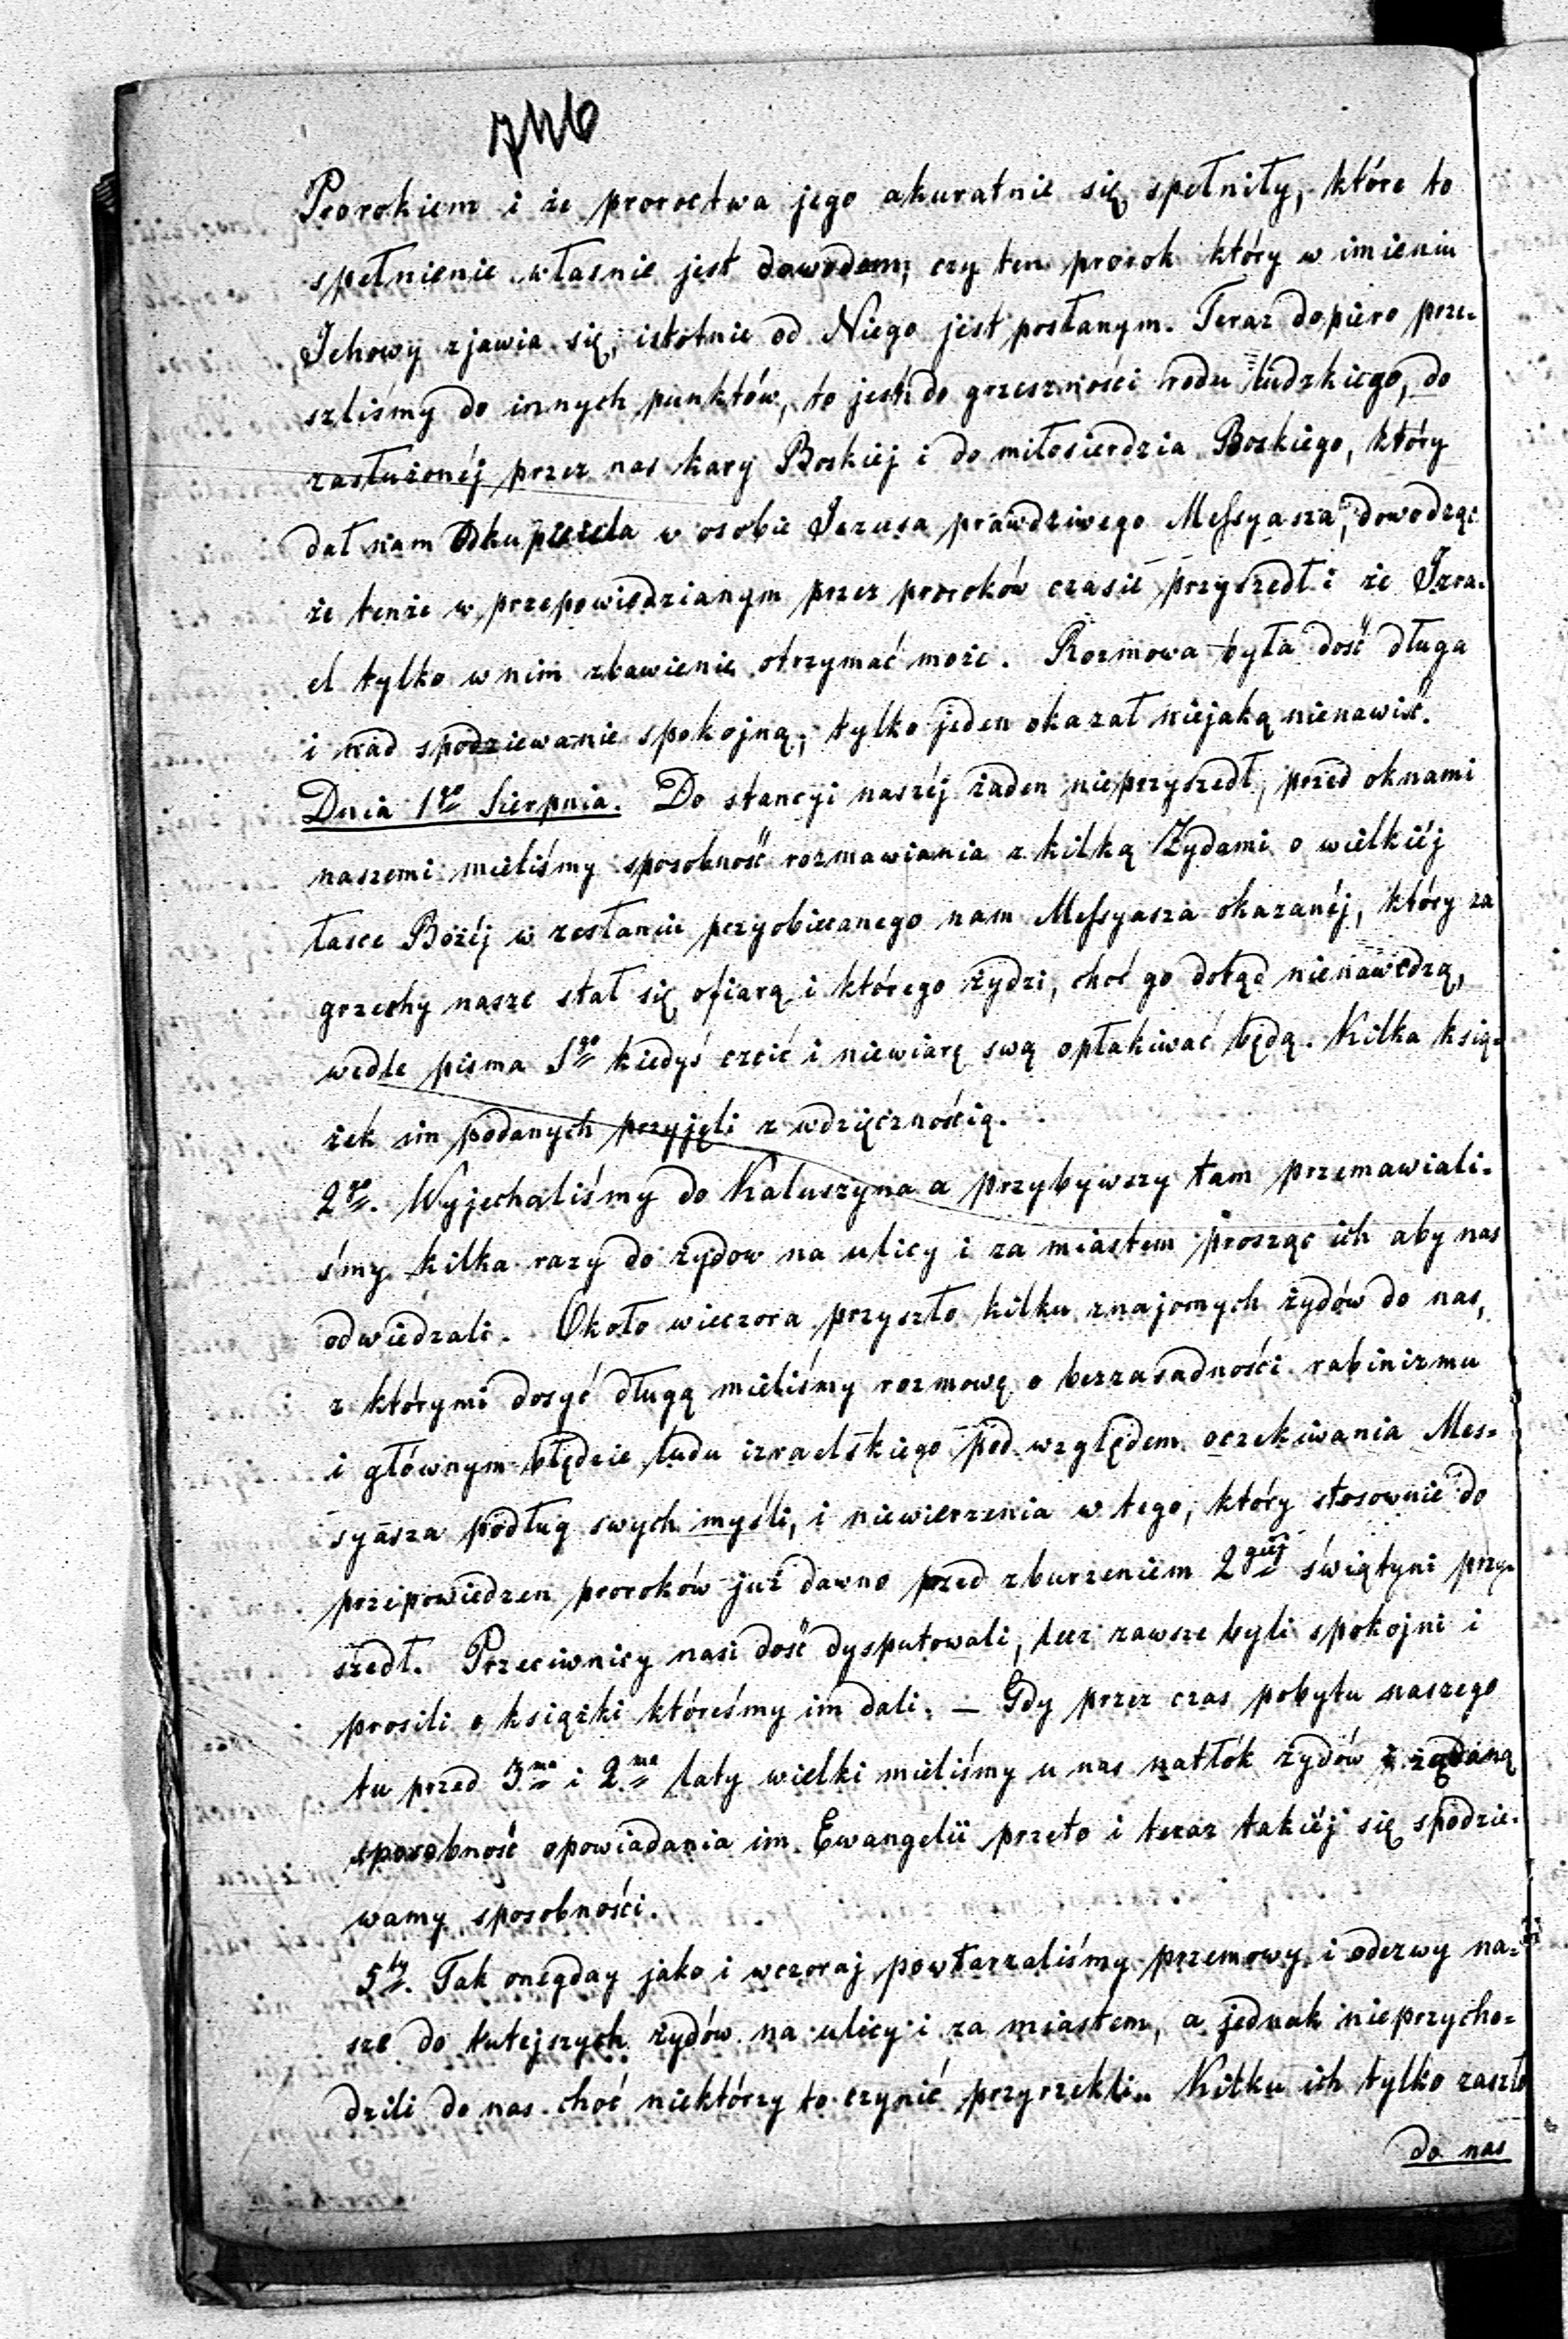 746
Prorokiem i że proroctwa jego akuratnie się spełniły, które to
spełnienie własnie jest dowodem, czy ten prorok który w imieniu
Jehowy zjawia się, istotnie od Niego jest posłanym. Teraz dopiero prze-
szliśmy do innych punktów, to jest do grzeszności rodu ludzkiego, do
zasłużonéj przez nas kary Boskiéj i do miłosierdzia Boskiego, który
dał nam Odkupiciela w osobie Jezusa prawdziwego Messyasza, dowodząc
że tenże w przepowiedzianym przez proroków czasie przyszedł i że Izra-
el tylko w nim zbawienie otrzymać może. Rozmowa była dość długa
i nad spodziewanie spokojną, tylko jeden okazał niejaką nienawiść.
Dnia 1go Sierpnia. Do stancyi naszéj żaden nieprzyszedł, przed oknami
naszemi mieliśmy sposobność rozmawiania z kilką Żydami o wielkiéj
łasce Bożéj w zesłaniu przyobiecanego nam Messyasza okazanéj, który za
grzechy nasze stał się ofiarą i którego żydzi, choć go dotąd nienawidzą,
wedle pisma Sgo kiedyś czcić i niewiarę swą opłakiwać będą. Kilka ksią-
żek im podanych przyjęli z wdzięcznością.
2go. Wyjechaliśmy do Kałuszyna a przybywszy tam przemawiali-
śmy kilka razy do żydow na ulicy i za miastem prosząc ich aby nas
odwiedzali. Około wieczora przyszło kilku znajomych żydów do nas,
z którymi dosyć długą mieliśmy rozmowę o bezzasadności rabinizmu
i głównym błędzie ludu izraelskiego pod względem oczekiwania Mes-
syasza podług swych myśli, i niewierzenia w tego, który stosownie do
przepowiedzen proroków już dawno przed zburzeniem 2giéj świątyni przy-
szedł. Przeciwnicy nasi dość dysputowali, lecz zawsze byli spokojni i
prosili o książki któreśmy im dali. — Gdy przez czas pobytu naszego
tu przed 3ma i 2ma laty wielki mieliśmy u nas natłók żydów i żądaną
sposobność opowiadania im Ewangelii przeto i teraz takiéj się spodzie-
wamy sposobności.
5ty. Tak onegday jako i wczoraj powtarzaliśmy przemowy i odezwy na-
sze do tutejszych żydów na ulicy i za miastem, a jednak nieprzycho-
dzili do nas choć niektórzy to czynić przyrzekli. Kilku ich tylko zaszło
do nas